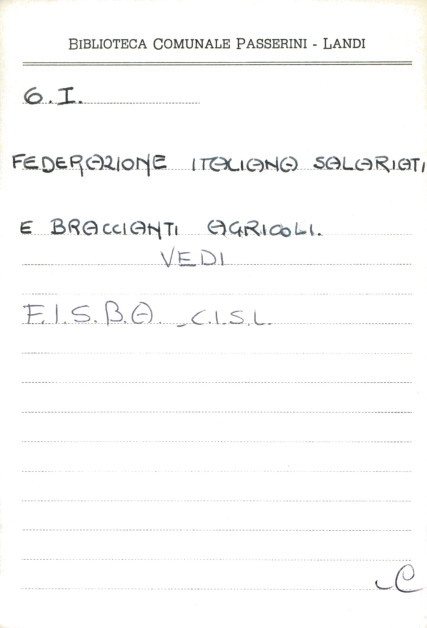 BIBLIOTECA COMUNALE PASSERINI - LANDI
6.I.
FEDERAZIONE ITALIANA SALARIATI,
E BRACCIANTI AGRICOLI.
VEDI
F.I.S.B.A. - C.I.S.L.